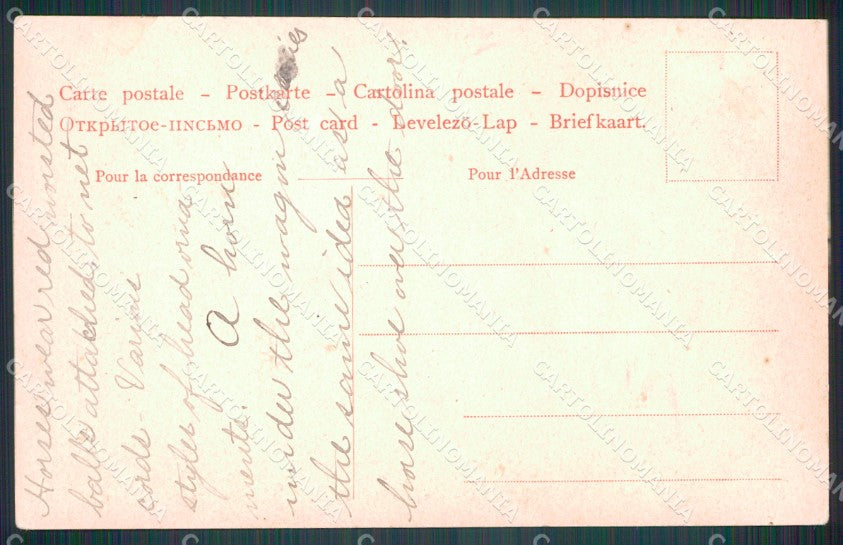 Carte postale – Postkarte – Cartolina postale – Dopisnice
Открытое-письмо - Post card - Levelezō-Lap - Briefkaart.
Pour la correspondance
Pour l'Adresse
Horses wear red worsted
balls attached to net
cords - Various
styles of head orna
ments. A horn
under the wagon carries
the same idea as a
horse shoe over the door.
CARTOLINOMANIA